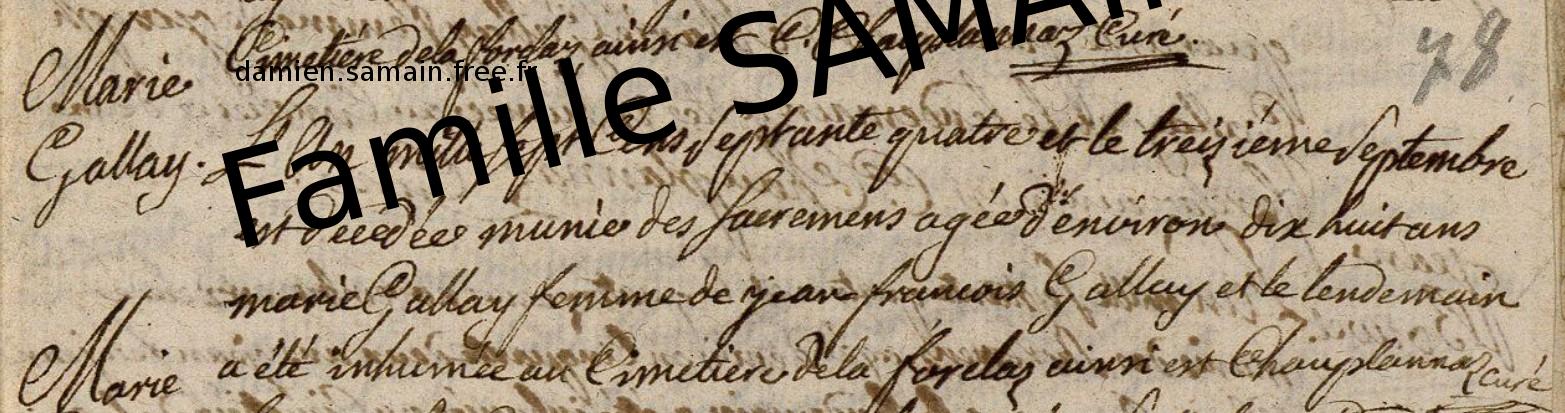 Cimetière dela forclaz ainsi est C. Chauplannaz Curé.
damien.samain.free.fr
Famille SAMAI
78
Marie
Gallay.
L'An mille sept Cens septante quatre et le treiziéme Septembre
est decedée munie des sacremens agée d'environ dix huit ans
marie Gallay femme de jean françois Gallay et le lendemain
a été inhumée au Cimetiere dela forclaz ainsi est Chauplannaz curé
Marie